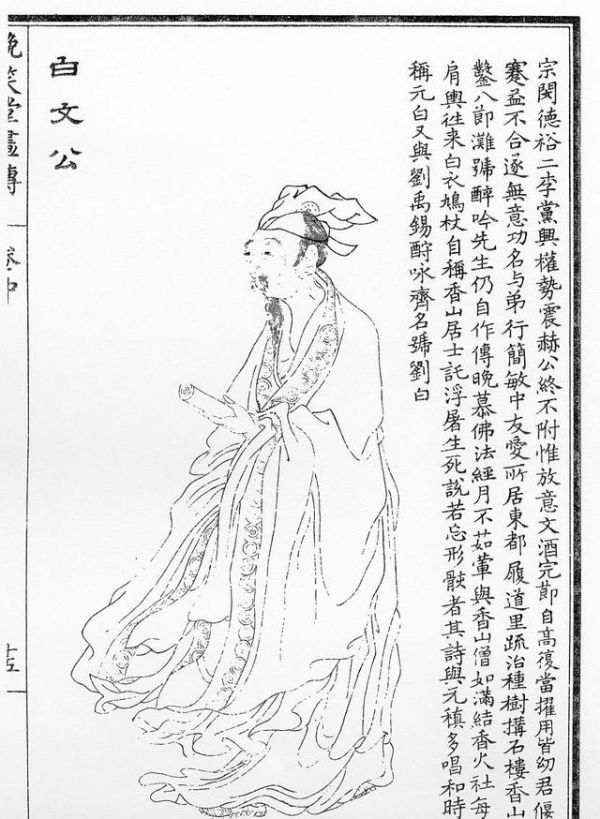 宗閔德裕二李黨興權勢震赫公終不附惟放意文酒完節自高復當擢用皆幼君偃
蹇益不合遂無意功名与弟行簡敏中友愛所居東都履道里疏治種樹搆石樓香山
鑿八節灘號醉吟先生仍自作傳晚慕佛法經月不茹葷與香山僧如滿結香火社每
肩輿往来白衣鳩杖自稱香山居士託浮屠生死說若忘形骸者其詩與元稹多唱和時
稱元白又與劉禹錫酧咏齊名號劉白
白文公
晚笑堂畫傳
卷中
十五